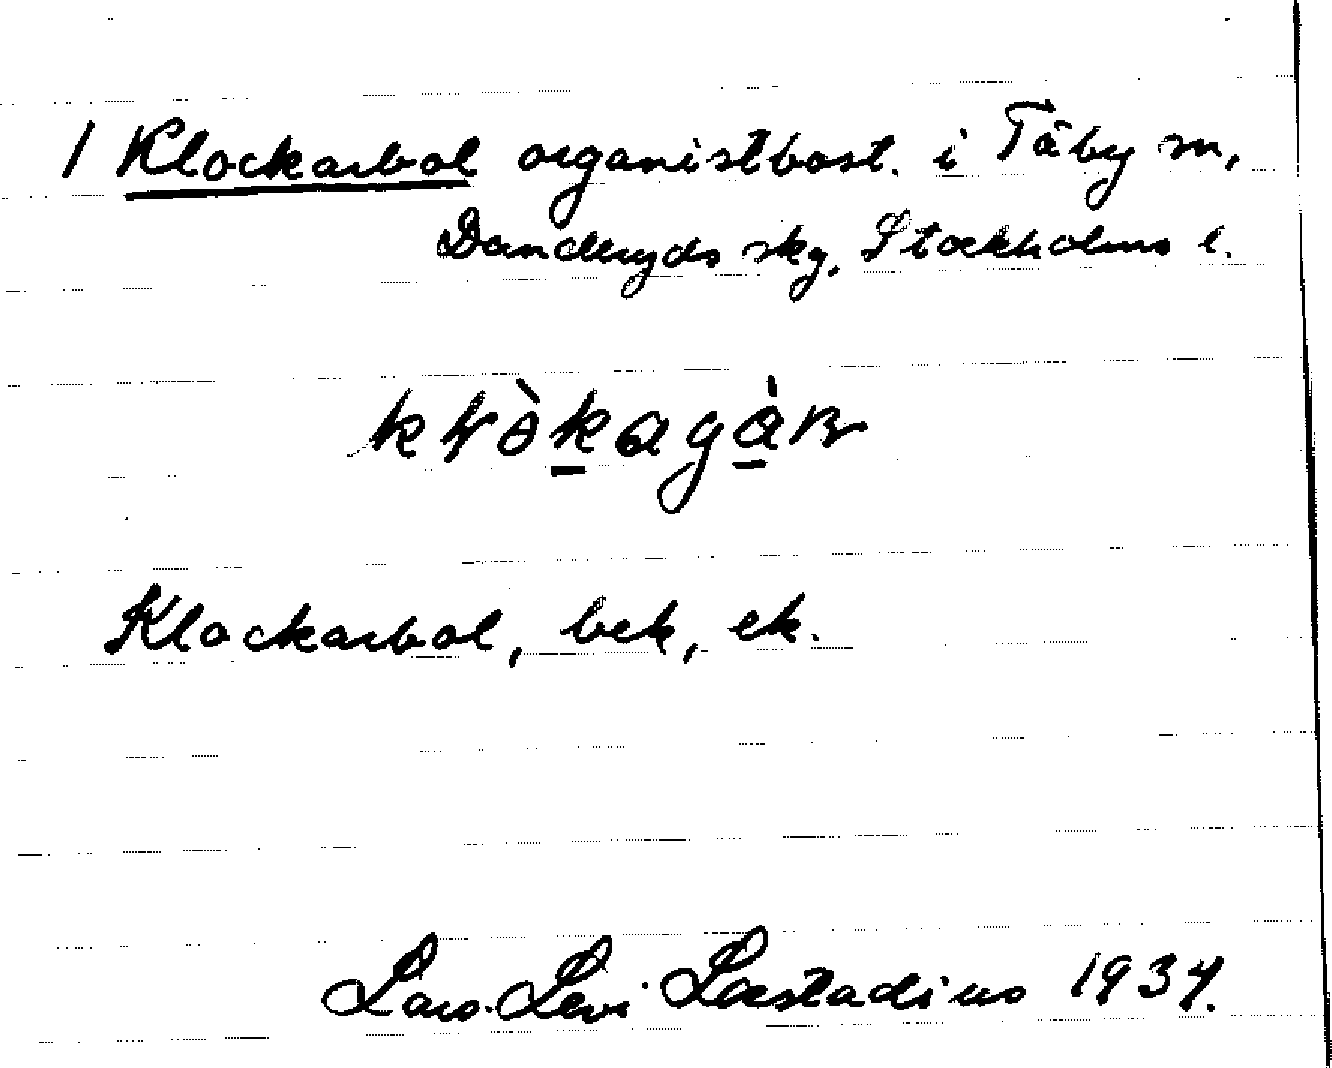 1 Klockarbol organistbost. i Täby sn,
Danderyds skg, Stockholms l.
Klockarbol, bek, ek.
Lars-Levi Læstadius 1934.